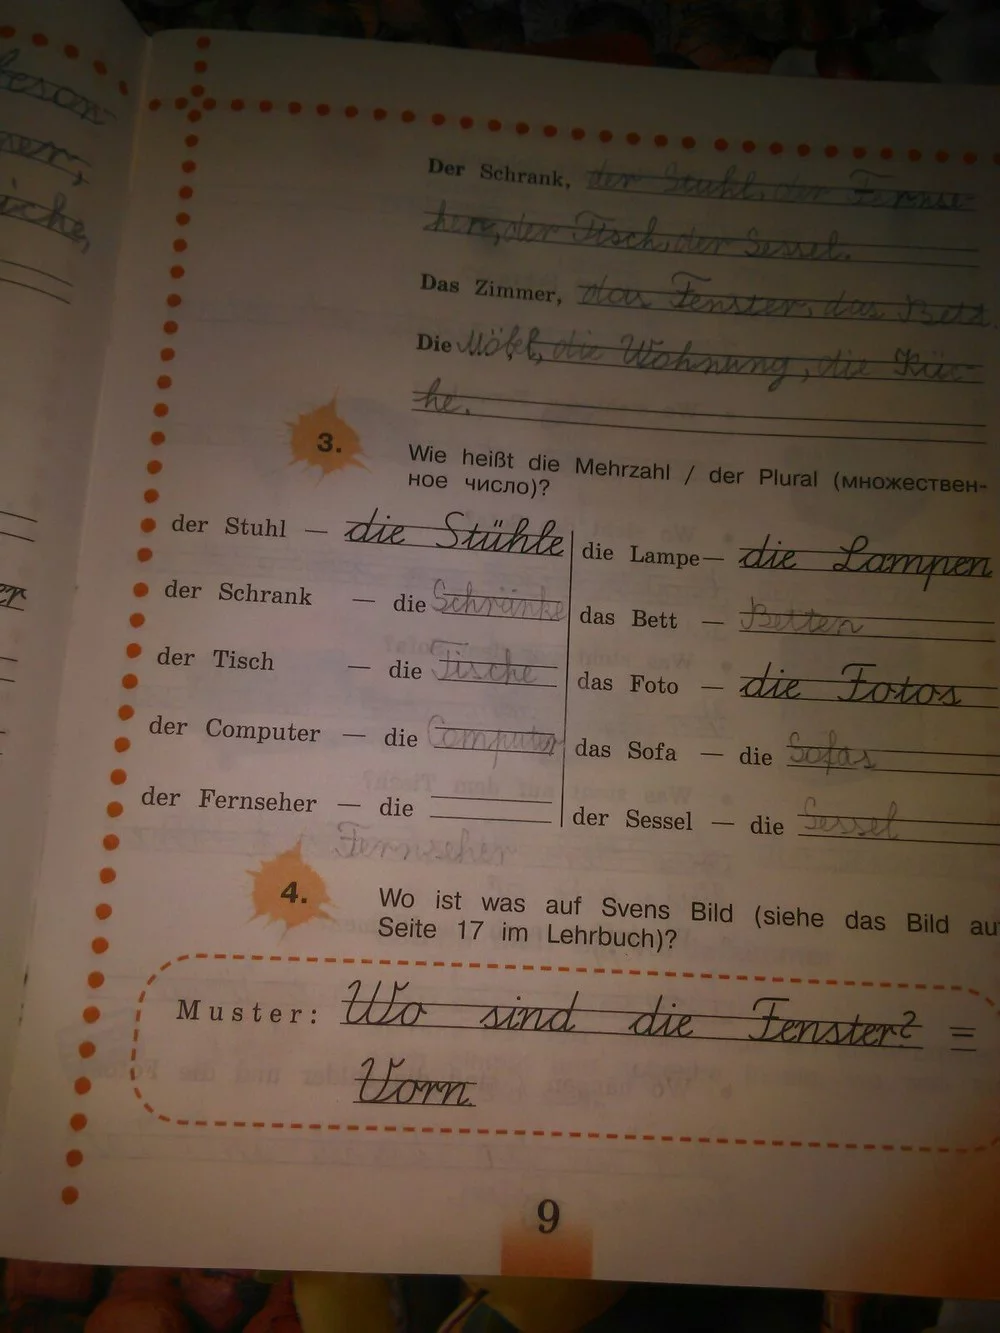 beson-
ner,
üche,
er
Der Schrank, der Stuhl, der Fernse-
her, der Tisch, der Sessel.
Das Zimmer, das Fenster, das Bett
Die Möbel, die Wohnung, die Küc-
he.
3. Wie heißt die Mehrzahl / der Plural (множествен-
ное число)?
der Stuhl — die Stühle
der Schrank — die Schränke
der Tisch — die Tische
der Computer — die Computer
der Fernseher — die
Fernseher
die Lampe — die Lampen
das Bett — Betten
das Foto — die Fotos
das Sofa — die Sofas
der Sessel — die Sessel
4. Wo ist was auf Svens Bild (siehe das Bild au
Seite 17 im Lehrbuch)?
Muster: Wo sind die Fenster? =
Vorn
9